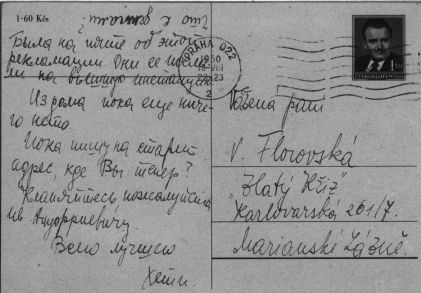 1·60 Kčs
что с
Была на почте об этой
рекламации. Они ее посла-
ли на высшую инстанцию
Из дома пока еще ниче-
го нета.
Пока пишу на старый
адрес, где Вы тепер?
Кланяйтесь пожалуйста
Всего лучшего
PRAHA 022
1950
22-23
2
ČESKOSLOVENSKO
1,50
Vážena paní
V. Florovská
"Zlatý Kříž"
Karlovarská 261/7.
Marianské Lázně.